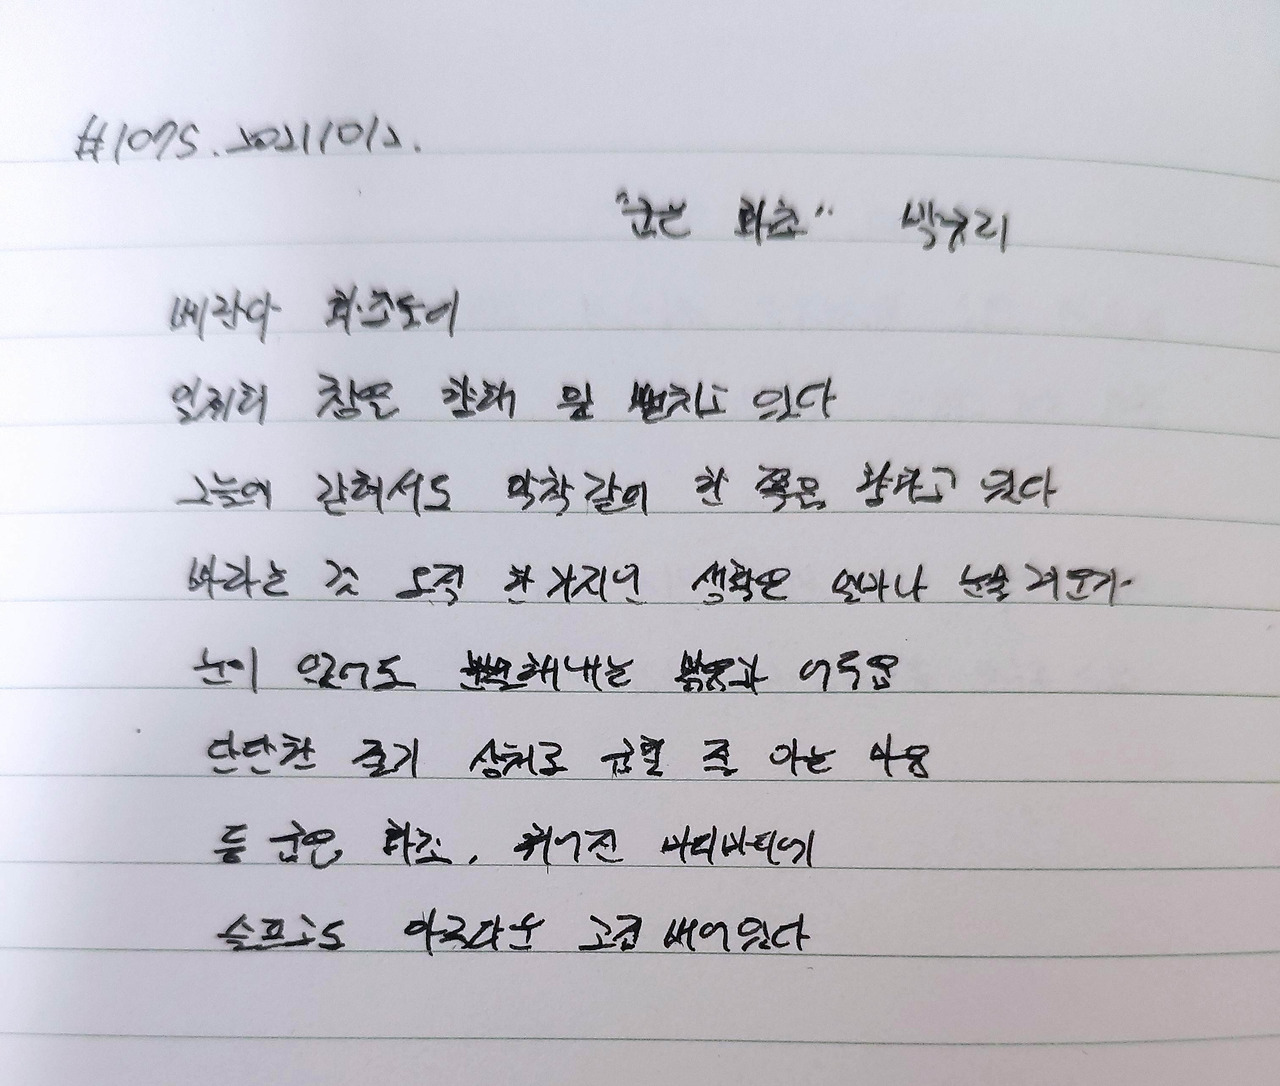 #1075. 20211012.
"굽은 화초" 박규리
베란다 화초도이
일제히 창문 향해 잎 뻗치고 있다
그늘에 갇혀서도 악착같이 한 쪽은 향하고 있다
바라는 것 오직 한가지인 생학은 얼마나 눈물겨운가
눈이 있어도 분별해내는 밝음과 어두움
단단한 줄기 상처로 굽힐 줄 아는 마음
등 굽은 화초, 휘어진 마디마디에
슬프고도 아름다운 고집 배어있다